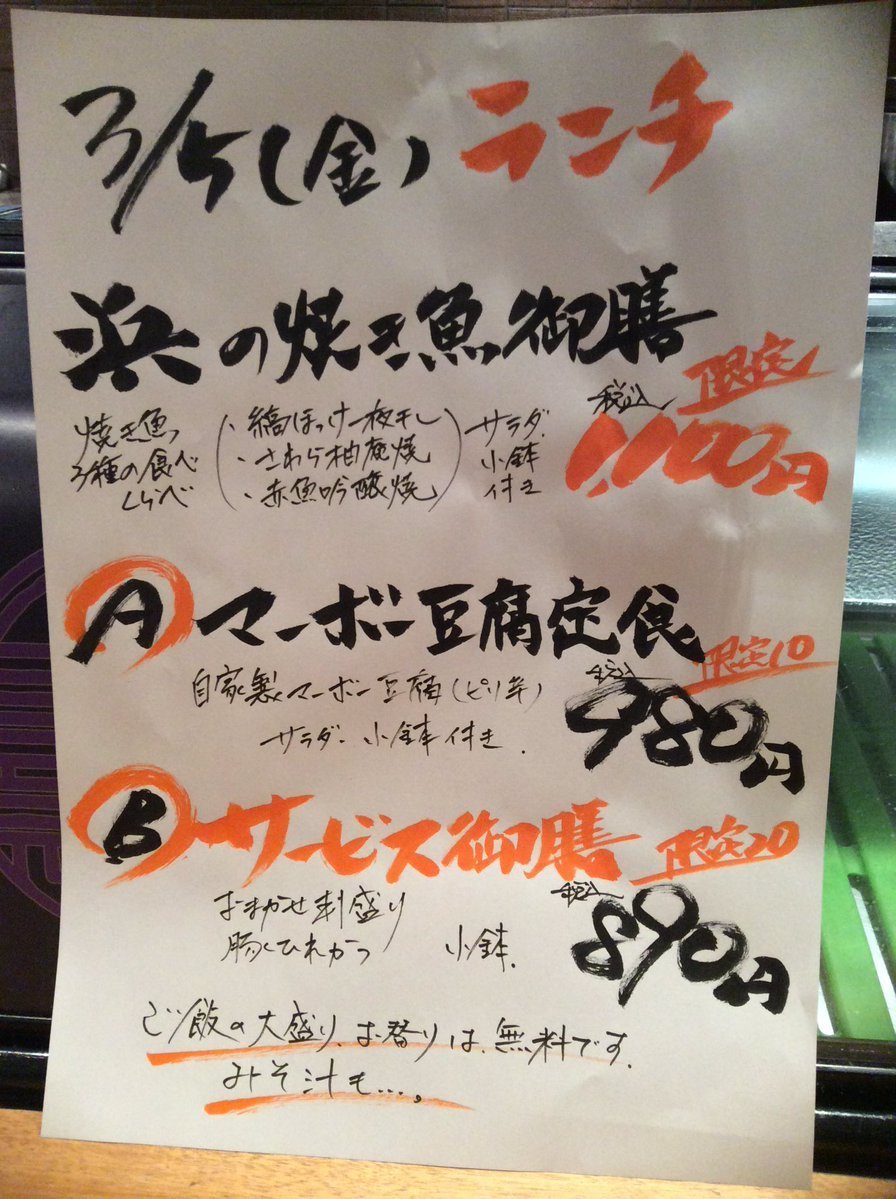 3/5(金) ランチ
浜の焼き魚御膳
限定
焼き魚
3種の食べ
くらべ
・縞ほっけ一夜干し
・さわら柚庵焼
・赤魚吟醸焼
サラダ
小鉢
付き
税込
1,100円
A マーボー豆腐定食
限定10
自家製マーボー豆腐(ピリ辛)
サラダ、小鉢付き.
税込
980円
B サービス御膳 限定20
おまかせ刺盛り
豚ひれかつ 小鉢.
税込
890円
ご飯の大盛り、お替りは、無料です.
みそ汁も…。